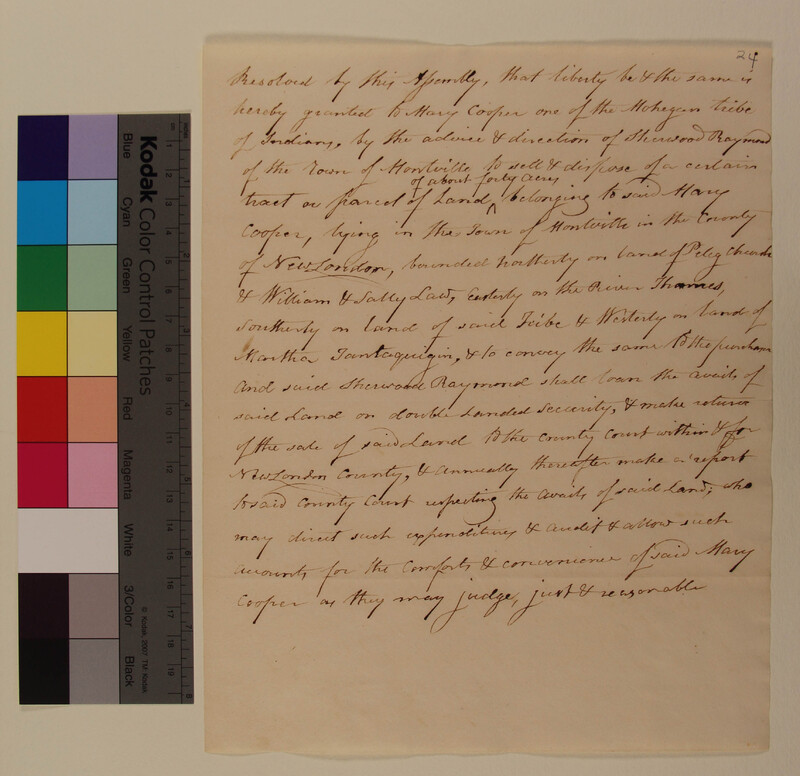 24
Resolved by this Assembly, that liberty be & the same is
hereby granted to Mary Cooper one of the Mohegan tribe
of Indians, by the advice & direction of Sherwood Raymond
of the Town of Montville to sell & dispose of a certain
of about forty acres
tract or parcel of Land ^ belonging to said Mary
Cooper, lying in the Town of Montville in the County
of New London, bounded northerly on land of Peleg Church
& William & Sally Law, Easterly on the River Thames,
Southerly on land of said Tribe & Westerly on land of
Martha Tantaquigin, & to convey the same to the purchaser
And said Sherwood Raymond shall loan the avails of
said Land on double Landed Security, & make return
of the sale of said Land to the County Court within & for
New London County, & Annually thereafter make a report
to said County Court respecting the avails of said Land, who
may direct such expenditures & audit & allow such
accounts for the Comforts & convenience of said Mary
Cooper as they may judge, just & reasonable
Kodak Color Control Patches
Blue
Cyan
Green
Yellow
Red
Magenta
White
3/Color
Black
© Kodak, 2007 TM: Kodak
cm 1 2 3 4 5 6 7 8 9 10 11 12 13 14 15 16 17 18 19
1 2 3 4 5 6 7 8